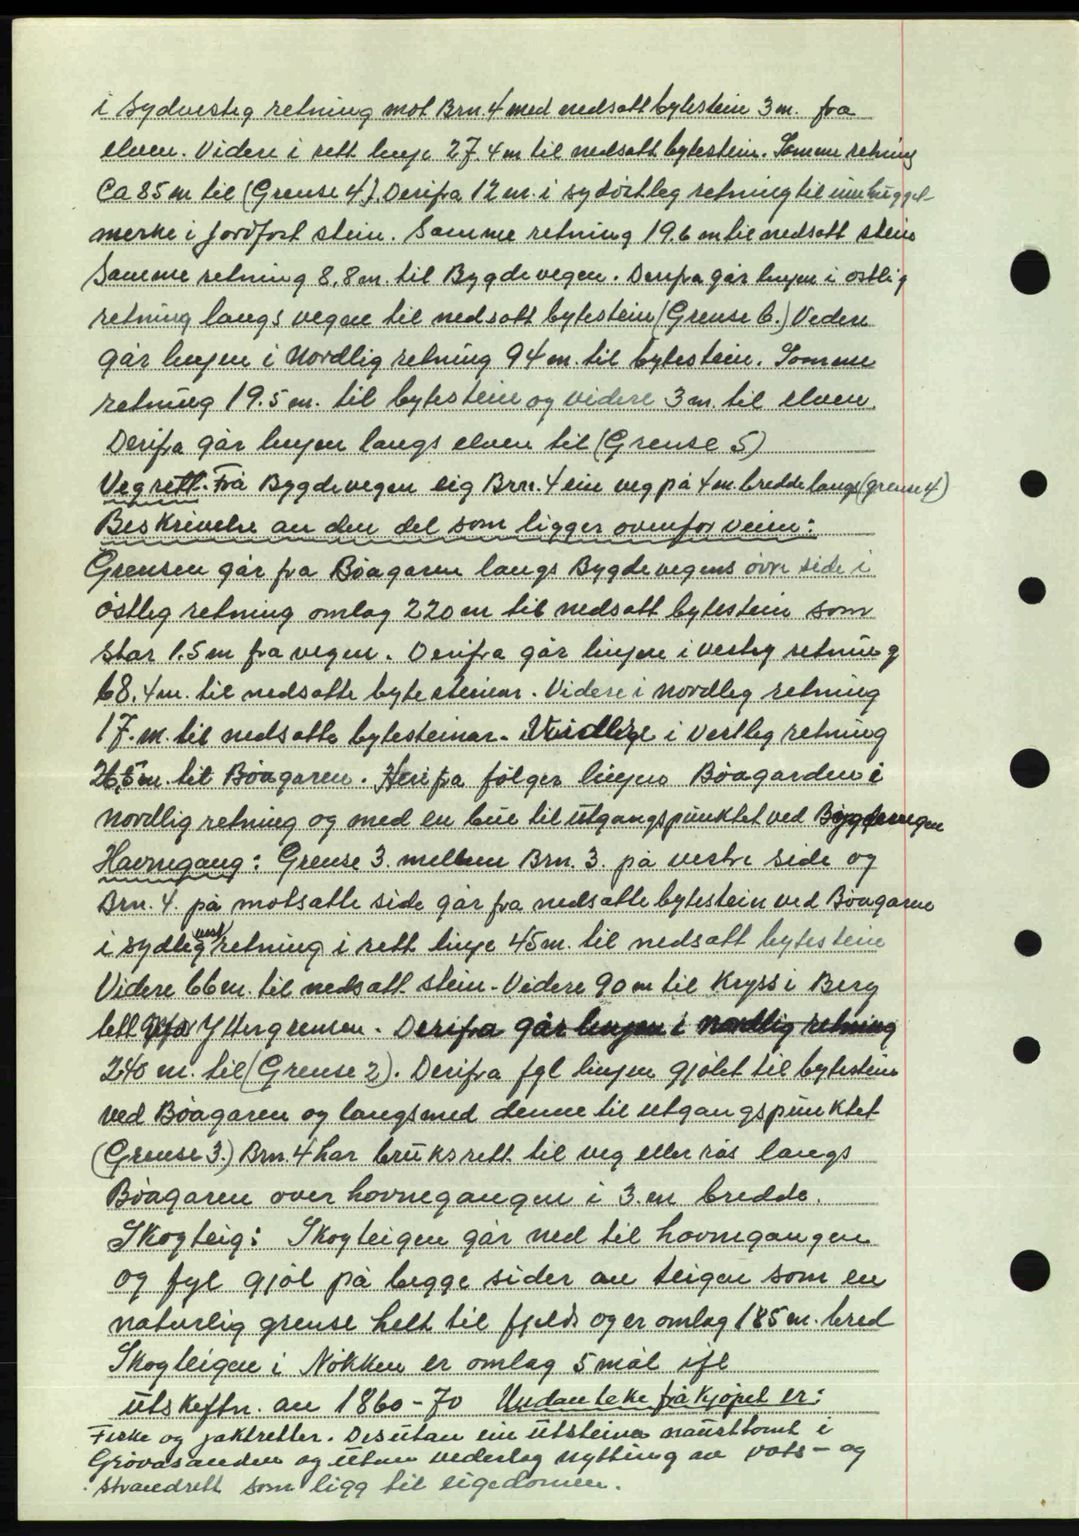 i Sydvestlig retning mot Brn. 4 med nedsatt bytestein 3 m. fra
elven. Videre i rett linje 27.4 m til nedsatt bytestein. Samme retning
Ca 85 m til (Grense 4). Derifra 12 m. i sydöstleg retning til innhugget
merke i jordfast stein. Samme retning 19.6 m til nedsatt stein
Samme retning 8,8 m. til Bygdevegen. Derifra går linjen i östlig
retning langs vegen til nedsatt bytestein (Grense 6.) Videre
går linjen i Nordlig retning 94 m. til bytestein. Samme
retning 19.5 m. til bytestein og videre 3 m. til elven.
Derifra går linjen langs elven til (Grense 5)
Vegrett. Frå Bygdevegen eig Brn. 4 ein veg på 4 m. bredde langs (grense 4)
Beskrivelse av den del som ligger ovenfor veien:
Grensen går fra Bøagaren langs Bygdevegens övre side i
östleg retning omlag 220 m til nedsatt bytestein som
står 1.5 m fra vegen. Derifra går linjen i vestleg retning
68.4 m. til nedsatte bytesteinar. Videre i nordleg retning
17. m. til nedsatte bytesteinar. i Vestleg retning
26,5 m. til Bøagaren. Herifra følger linjen Bøagarden i
nordlig retning og med en bue til utgangspunktet ved Bygdevegen
Havnegang: Grense 3. mellem Brn. 3. på vestre side og
Brn. 4. på motsatte side går fra nedsatte bytestein ved Bøagaren
i sydvestleg retning i rett linje 45 m. til nedsatt bytestein
Videre 66 m. til nedsatt stein. Videre 90 m til Kryss i Berg
Yttergrensen. Derifra går linjen i nordlig retning
240 m. til (Grense 2). Derifra fyl linjen gjölet til bytestein
ved Bøagaren og langsmed denne til utgangspunktet
(Grense 3.) Brn. 4 har bruksrett til veg eller rås langs
Bøagaren over hovnegangen i 3. m bredde.
Skogteig: Skogteigen går ned til havnegangen
og fyl gjöl på begge sider av teigen som en
naturlig grense helt til fjells og er omlag 185 m. bred
Skogteigen i Nökken er omlag 5 mål ifl
utskiftn. av 1860-70 Undanteke frå kjöpet er:
Fiske og jaktretter. Desutan ein utsteina nausttomt i
Grövasanden og utan vederlag nytting av vats- og
strandrett som ligg til eigedomen.